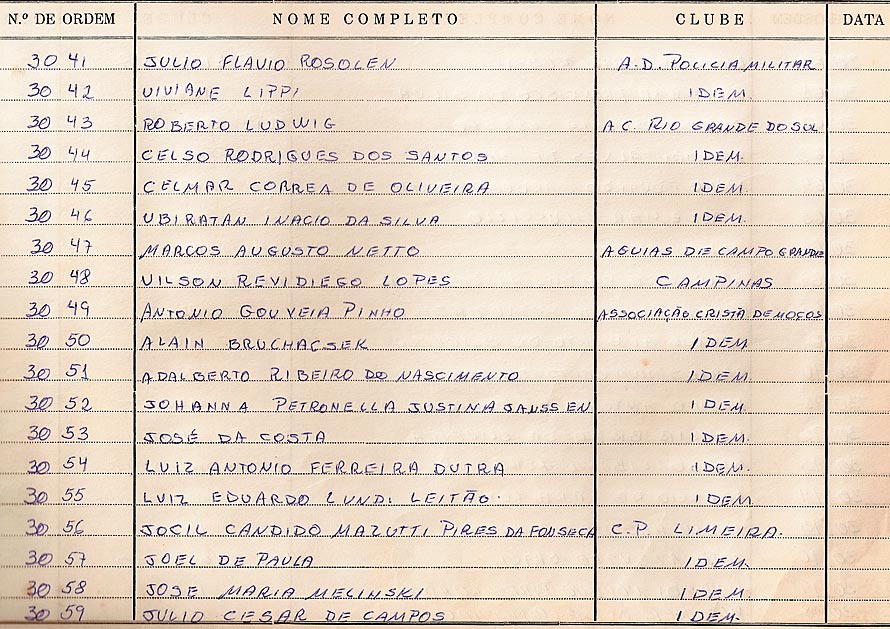 N.º DE ORDEM NOME COMPLETO CLUBE DATA
30 41 JULIO FLAVIO ROSOLEN A.D. POLICIA MILITAR
30 42 VIVIANE LIPPI IDEM.
30 43 ROBERTO LUDWIG A C. RIO GRANDE DO SUL
30 44 CELSO RODRIGUES DOS SANTOS IDEM.
30 45 CELMAR CORREA DE OLIVEIRA IDEM.
30 46 UBIRATAN INACIO DA SILVA IDEM.
30 47 MARCOS AUGUSTO NETTO AGUIAS DE CAMPO GRANDE
30 48 VILSON REVIDIEGO LOPES CAMPINAS
30 49 ANTONIO GOUVEIA PINHO ASSOCIAÇÃO CRISTÃ DE MOÇOS
30 50 ALAIN BRUCHACSEK IDEM
30 51 ADALBERTO RIBEIRO DO NASCIMENTO IDEM.
30 52 JOHANNA PETRONELLA JUSTINA JANSSEN IDEM.
30 53 JOSÉ DA COSTA IDEM.
30 54 LUIZ ANTONIO FERREIRA DUTRA IDEM.
30 55 LUIZ EDUARDO LUNDI LEITÃO. IDEM
30 56 JOCIL CANDIDO MAZUTTI PIRES DA FONSECA C.P LIMEIRA.
30 57 JOEL DE PAULA IDEM.
30 58 JOSE MARIA MELINSKI IDEM
30 59 JULIO CESAR DE CAMPOS IDEM.